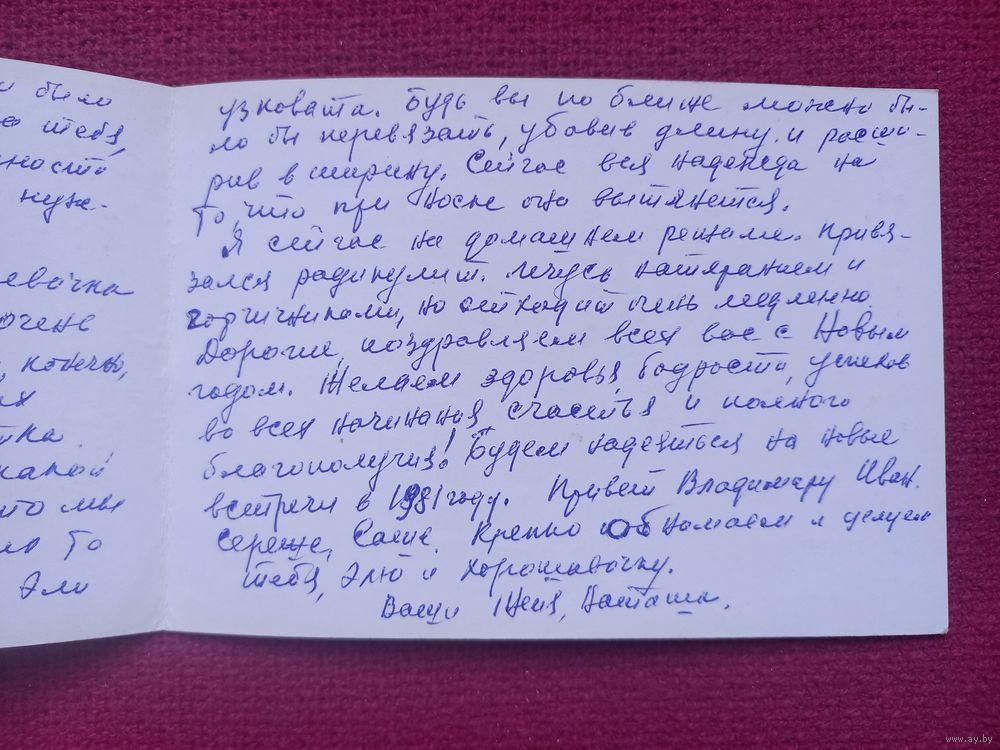 и было
тебя,
ности
нуж-
девочка
очень
, конечно,
их
тка.
какой
что мы
то
Эли
узковата. Будь вы по ближе можно бы-
ло бы перевязать, убавив длину и расши-
рив в ширину. Сейчас вся надежда на
то, что при носке она вытянется.
Я сейчас на домашнем режиме. Привя-
зался радикулит. Лечусь натиранием и
горчичниками, но отходит очень медленно.
Дорогие, поздравляем всех вас с Новым
годом. Желаем здоровья, бодрости, успехов
во всех начинаниях, счастья и полного
благополучия! Будем надеяться на новые
встречи в 1981 году. Привет Владимиру Иван.
Сереже, Саше. Крепко обнимаем и целуем
тебя, Элю и хорошавочку.
Ваши Женя, Наташа.
www.ay.by